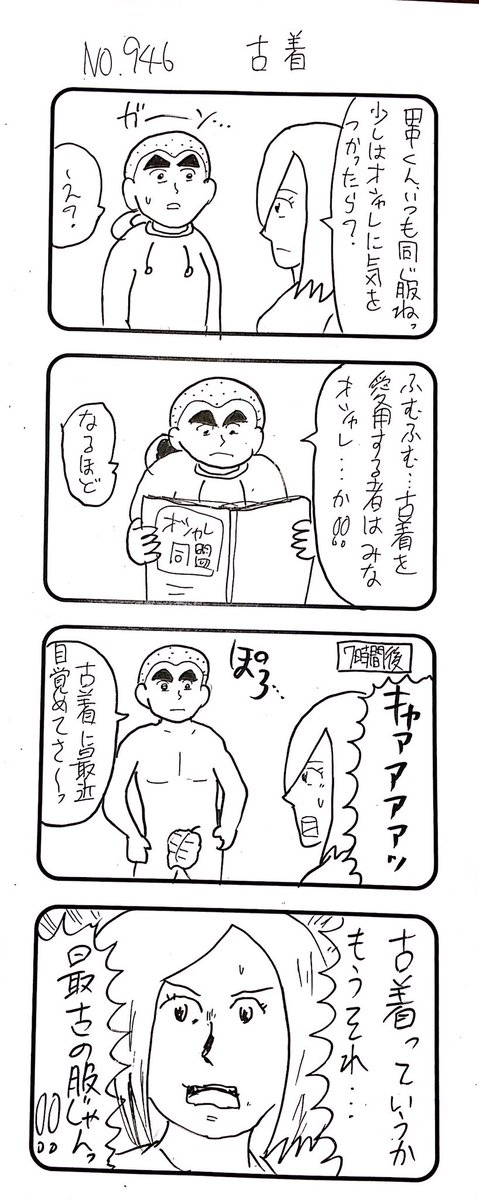 NO.946 古着
田中くん、いつも同じ服ねっ
少しはオシャレに気を
つかったら?
ガーン…
え?
ふむふむ…古着を
愛用する者はみな
オシャレ…か!!
なるほど
オシャレ
同盟
7時間後
キャアアアアッ
ぽろ…
古着に最近
目覚めてさ〜っ
古着っていうか
もうそれ…
最古の服じゃんっ
!!